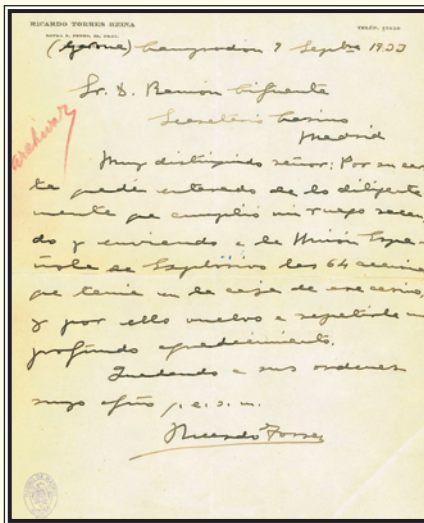 RICARDO TORRES REINA
(Gerona) Camprodon 7 Septbre 1933
Sr. D. Ramón Cifuente
Secretario Casino
Madrid
archivar
Muy distinguido señor: Por su car
ta quedé enterado de lo diligente
mente que cumplió mi ruego sacan
do y enviando a la Unión Espa
ñola de Explosivos las 64 acciones
que tenia en la caja de ese casino,
y por ello vuelvo a repetirle mi
profundo agradecimiento.
Quedando a sus ordenes
suyo afmo
Ricardo Torres